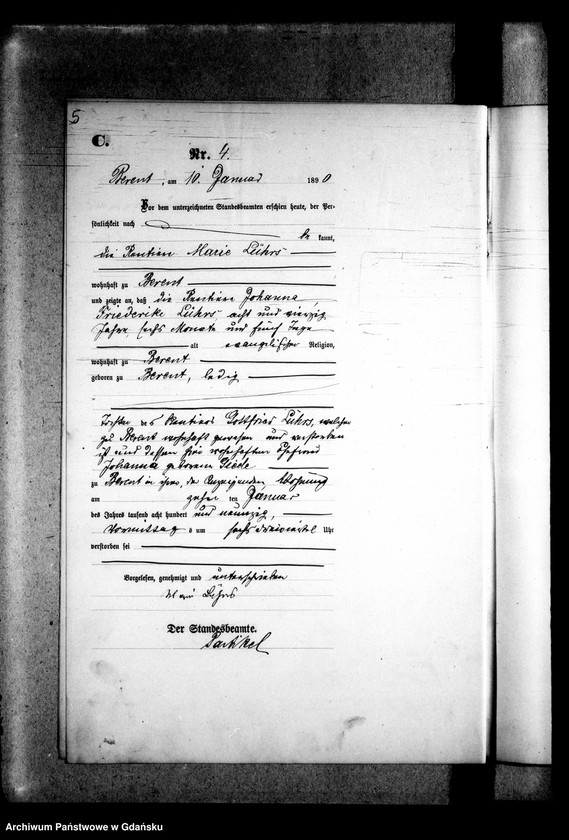 5
C.
Nr. 4.
Berent, am 10. Januar 1890
Vor dem unterzeichneten Standesbeamten erschien heute, der Per-
sönlichkeit nach
be kannt,
die Rentiere Marie Lührs
wohnhaft zu Berent
und zeigte an, daß die Rentiere Johanna
Friederike Lührs acht und vierzig
Jahre sechs Monate und fünf Tage
alt evangelischer Religion,
wohnhaft zu Berent
geboren zu Berent, ledig
Tochter des Rentiers Gottfried Lührs, welcher
zu Berent wohnhaft gewesen und verstorben
ist und dessen hier wohnhaften Ehefrau
Johanna geborene
zu Berent in ihrer, der Anzeigenden Wohnung
am zehn ten Januar
des Jahres tausend acht hundert und neunzig,
Vormittag s um sechs dreiviertel Uhr
verstorben sei
Vorgelesen, genehmigt und unterschrieben
Marie Lührs
Der Standesbeamte.
Partikel
Archiwum Państwowe w Gdańsku